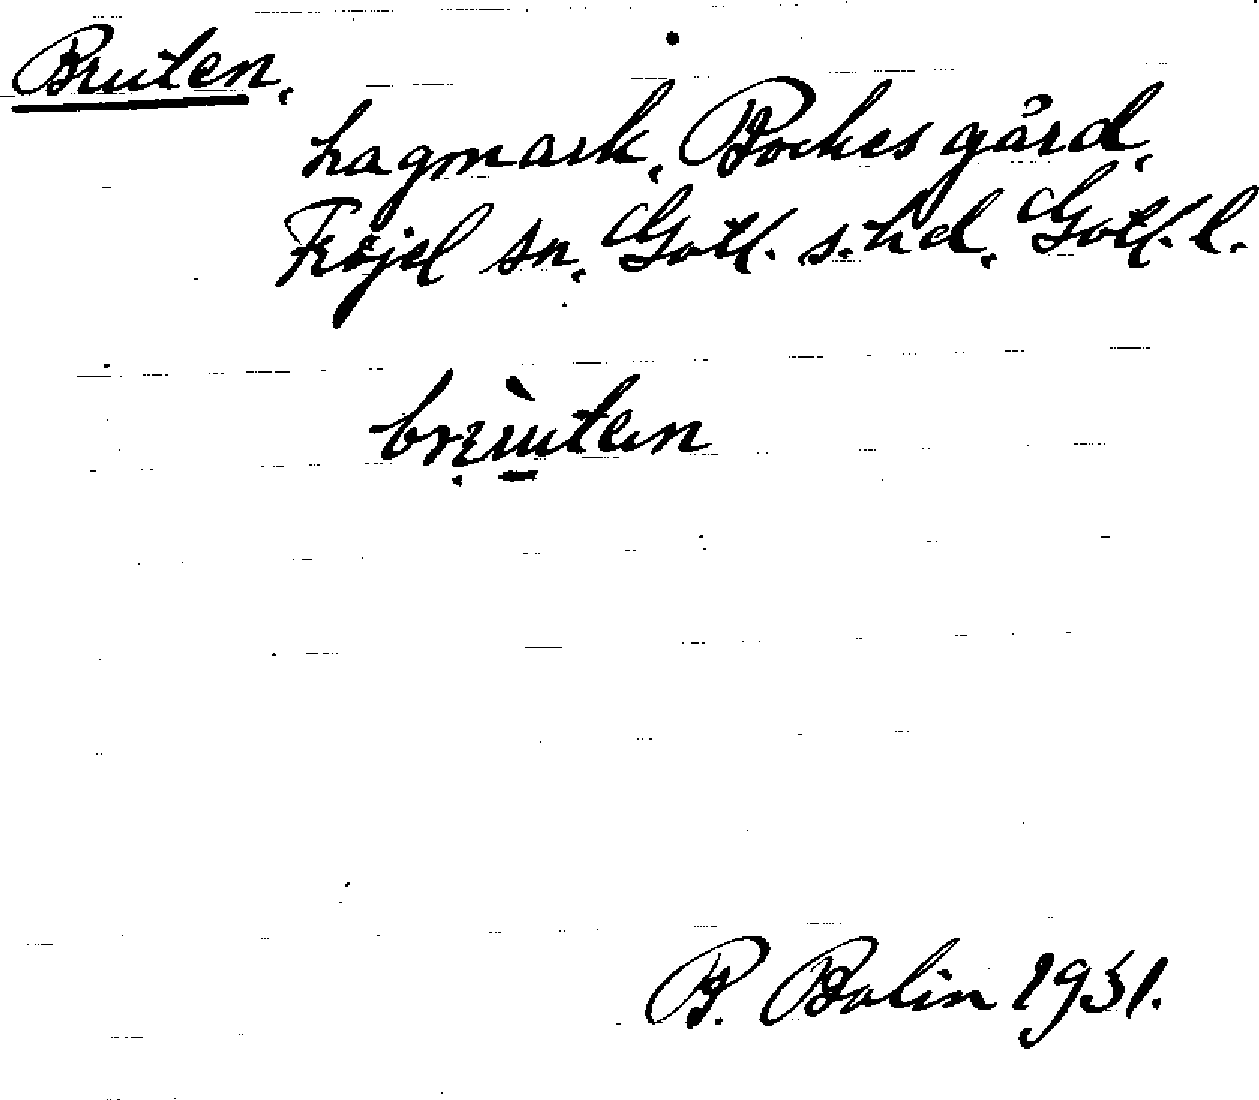 Bruten.
hagmark, Bockes gård,
Fröjel sn. Gotl. s. hd. Gotl. l.
brùten
B. Bolin 1931.